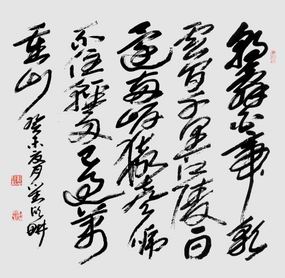 朝辭白帝彩
雲間千里江陵一日
還兩岸猿聲啼
不住輕舟已過萬
重山
癸未夏月